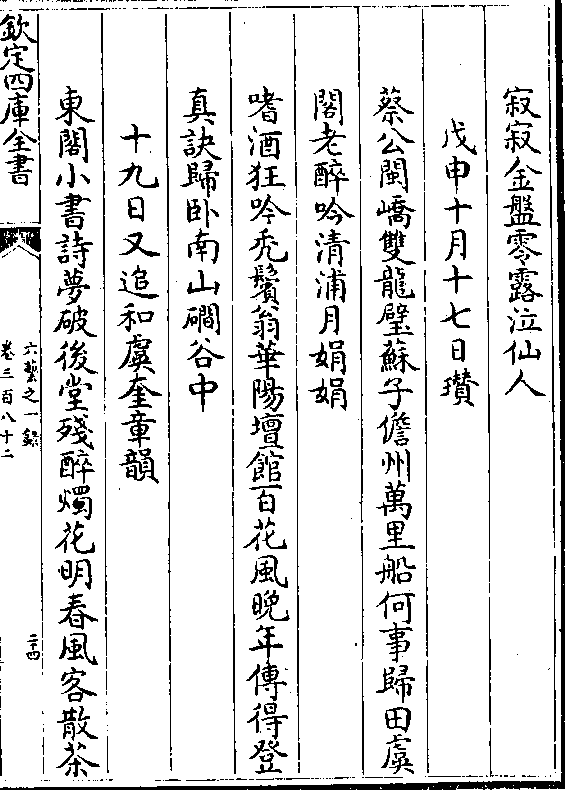 寂寂金盤零露泣仙人
戊申十月十七日瓚
蔡公閩嶠雙龍璧蘇子儋州萬里船何事歸田虞
閣老醉吟清浦月娟娟
嗜酒狂吟禿鬢翁華陽壇館百花風晚年傳得登
真訣歸卧南山磵谷中
十九日又追和虞奎章韻
東閣小書詩夢破後堂殘醉燭花明春風客散茶
欽定四庫全書
六藝之一錄
卷三百八十二
二十四